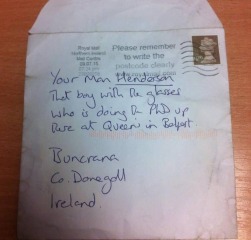 Royal Mail
Northern Ireland
Mail Centre
Please remember
to write the
postcode clearly
Your Man Henderson
That boy with the glasses
who is doing the PhD up
here at Queen's in Belfast.
Buncrana
Co. Donegall
Ireland.